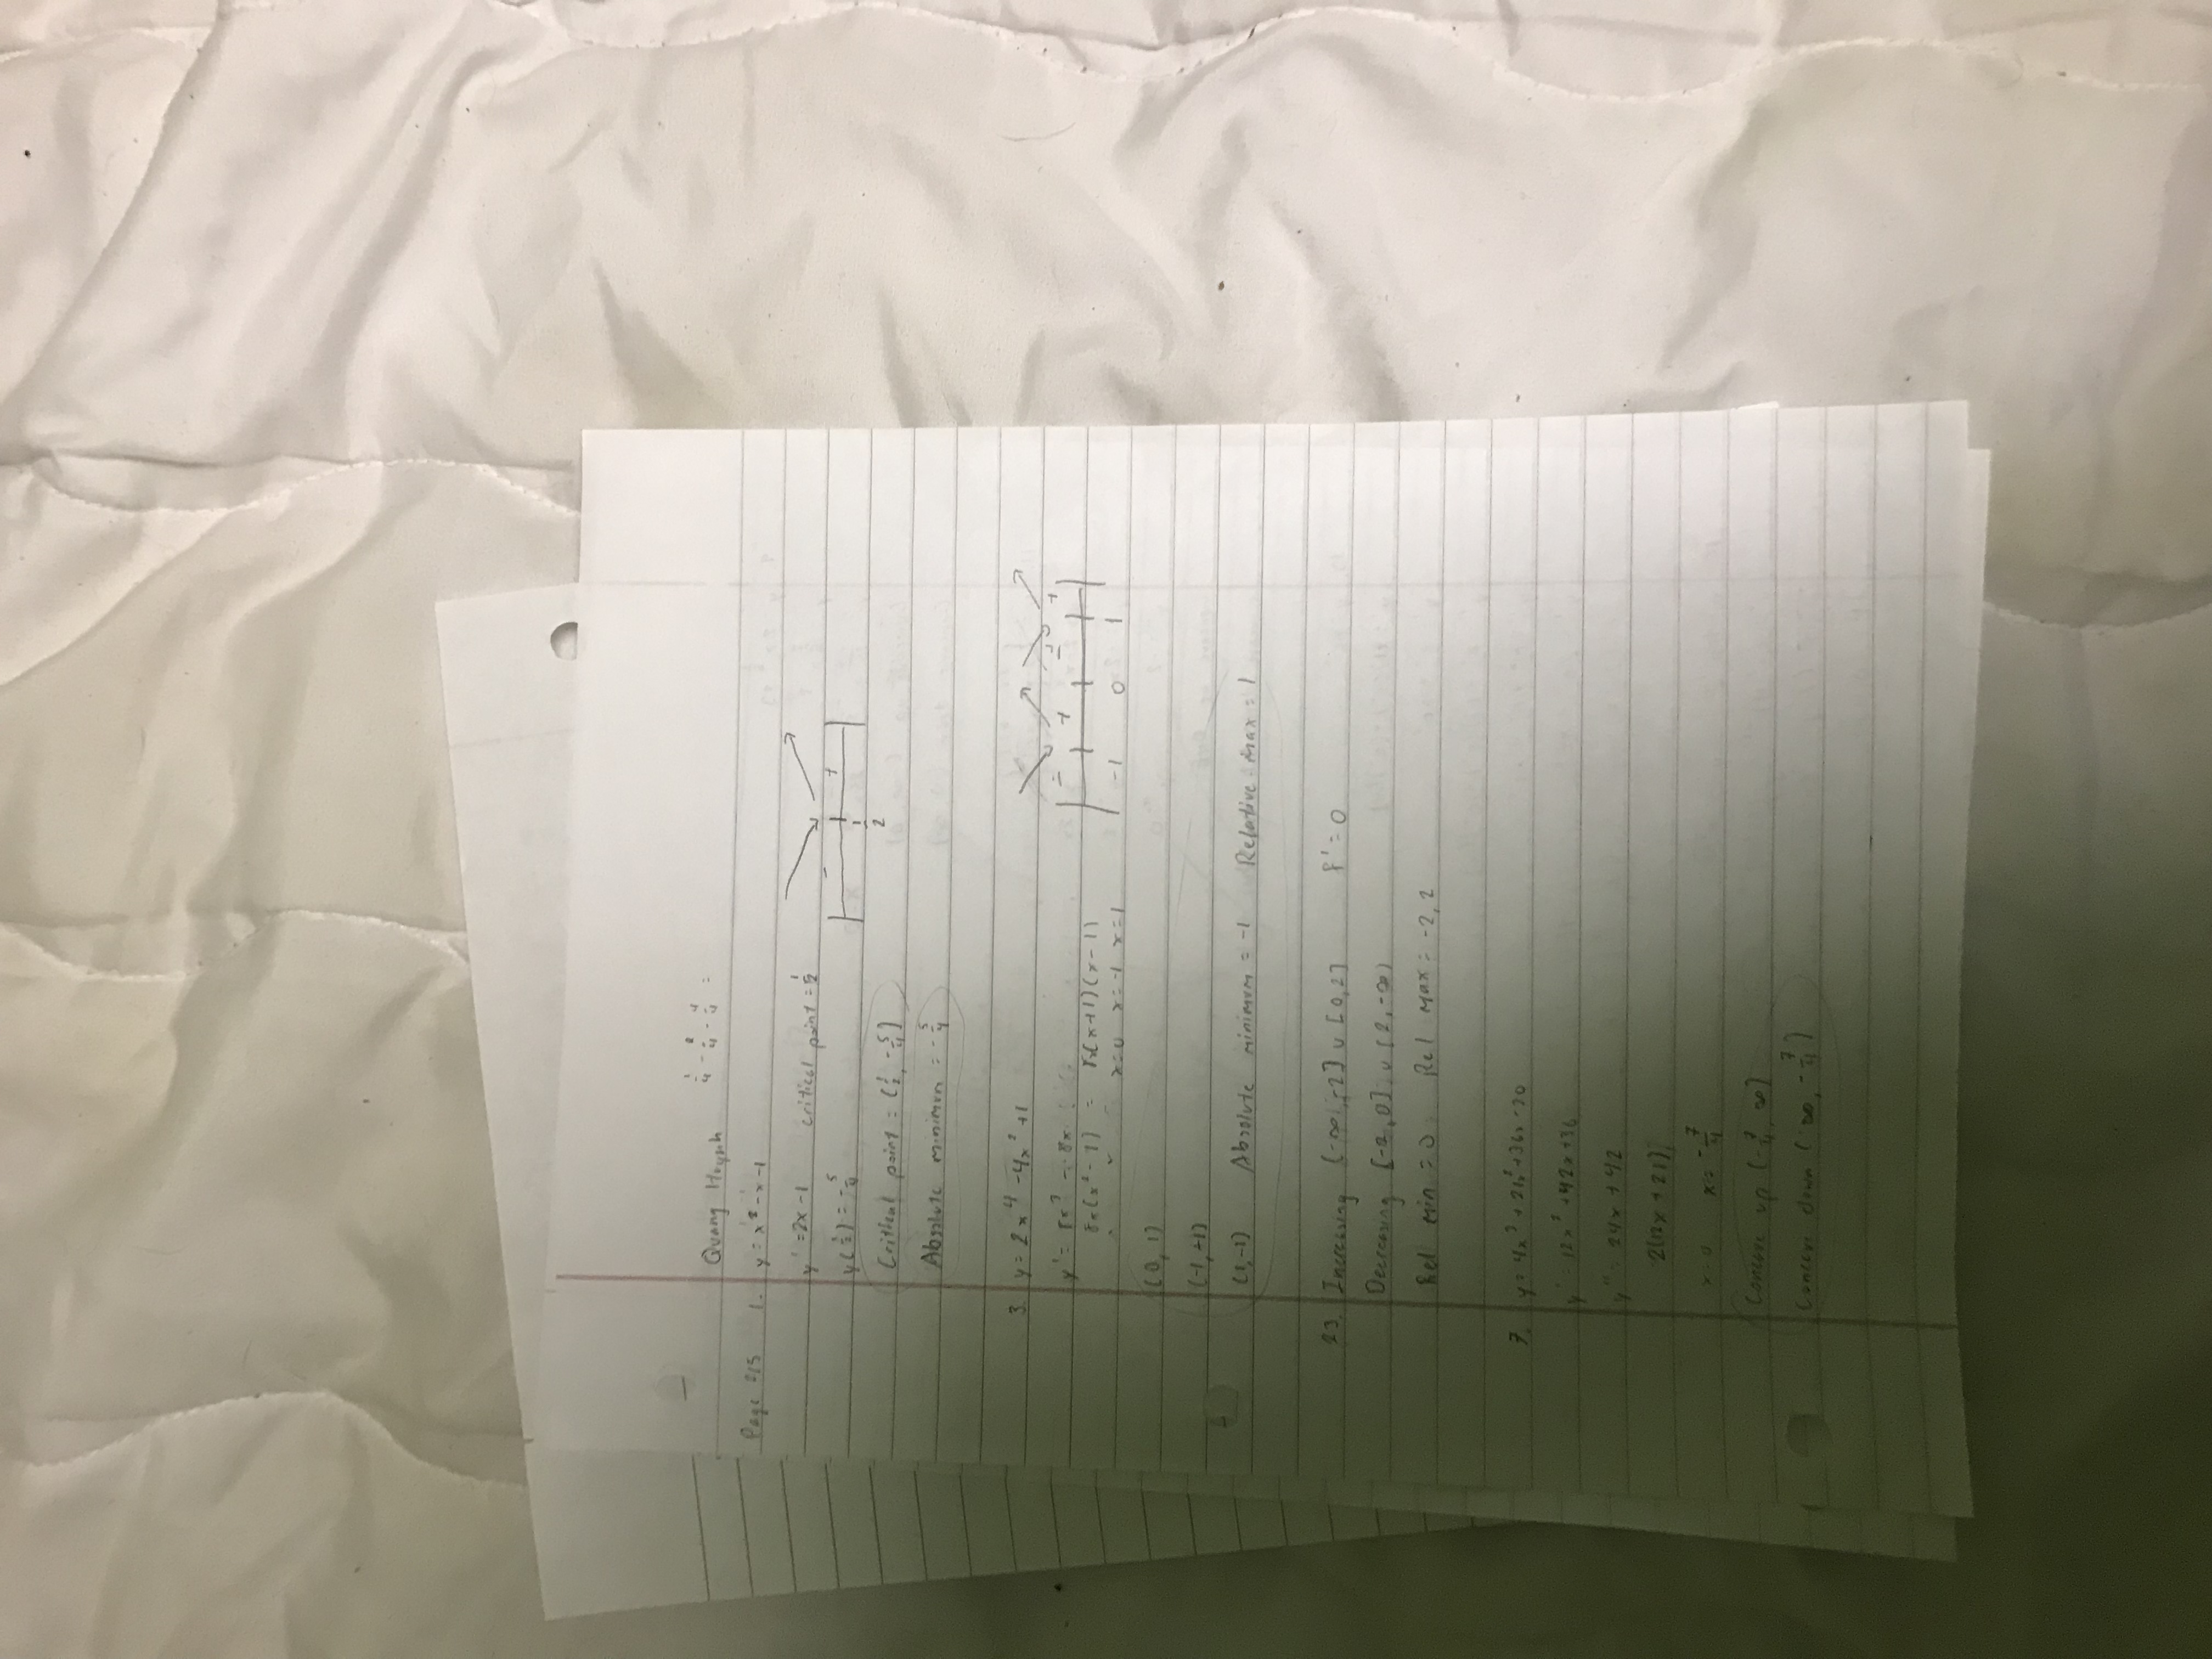 Quang Huynh 1/4 - 2/4 - 4/4 =
Page 215 1. y = x² - x - 1
y' = 2x - 1 critical point = 1/2
- +
y(1/2) = -5/4
1/2
Critical point = (1/2, -5/4)
Absolute minimum = -5/4
3. y = 2x⁴ - 4x² + 1
y' = 8x³ - 8x
- + - +
8x(x² - 1) = 8x(x+1)(x-1)
x=0 x=-1 x=1
-1 0 1
(0, 1)
(-1, +1)
(1, -1) Absolute minimum = -1 Relative max = 1
23. Increasing (-∞, -2] ∪ [0,2] f' = 0
Decreasing [-2, 0] ∪ [2, -∞)
Rel min = 0 Rel max = -2, 2
7. y = 4x³ + 21x² + 36x - 20
y' = 12x² + 42x + 36
y'' = 24x + 42
2(12x + 21)
x=0 x = -7/4
Concave up (-7/4, ∞)
Concave down (∞, -7/4)